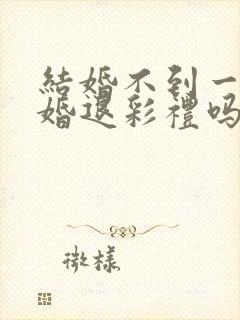 結婚不到一
婚退彩禮吗
微樣